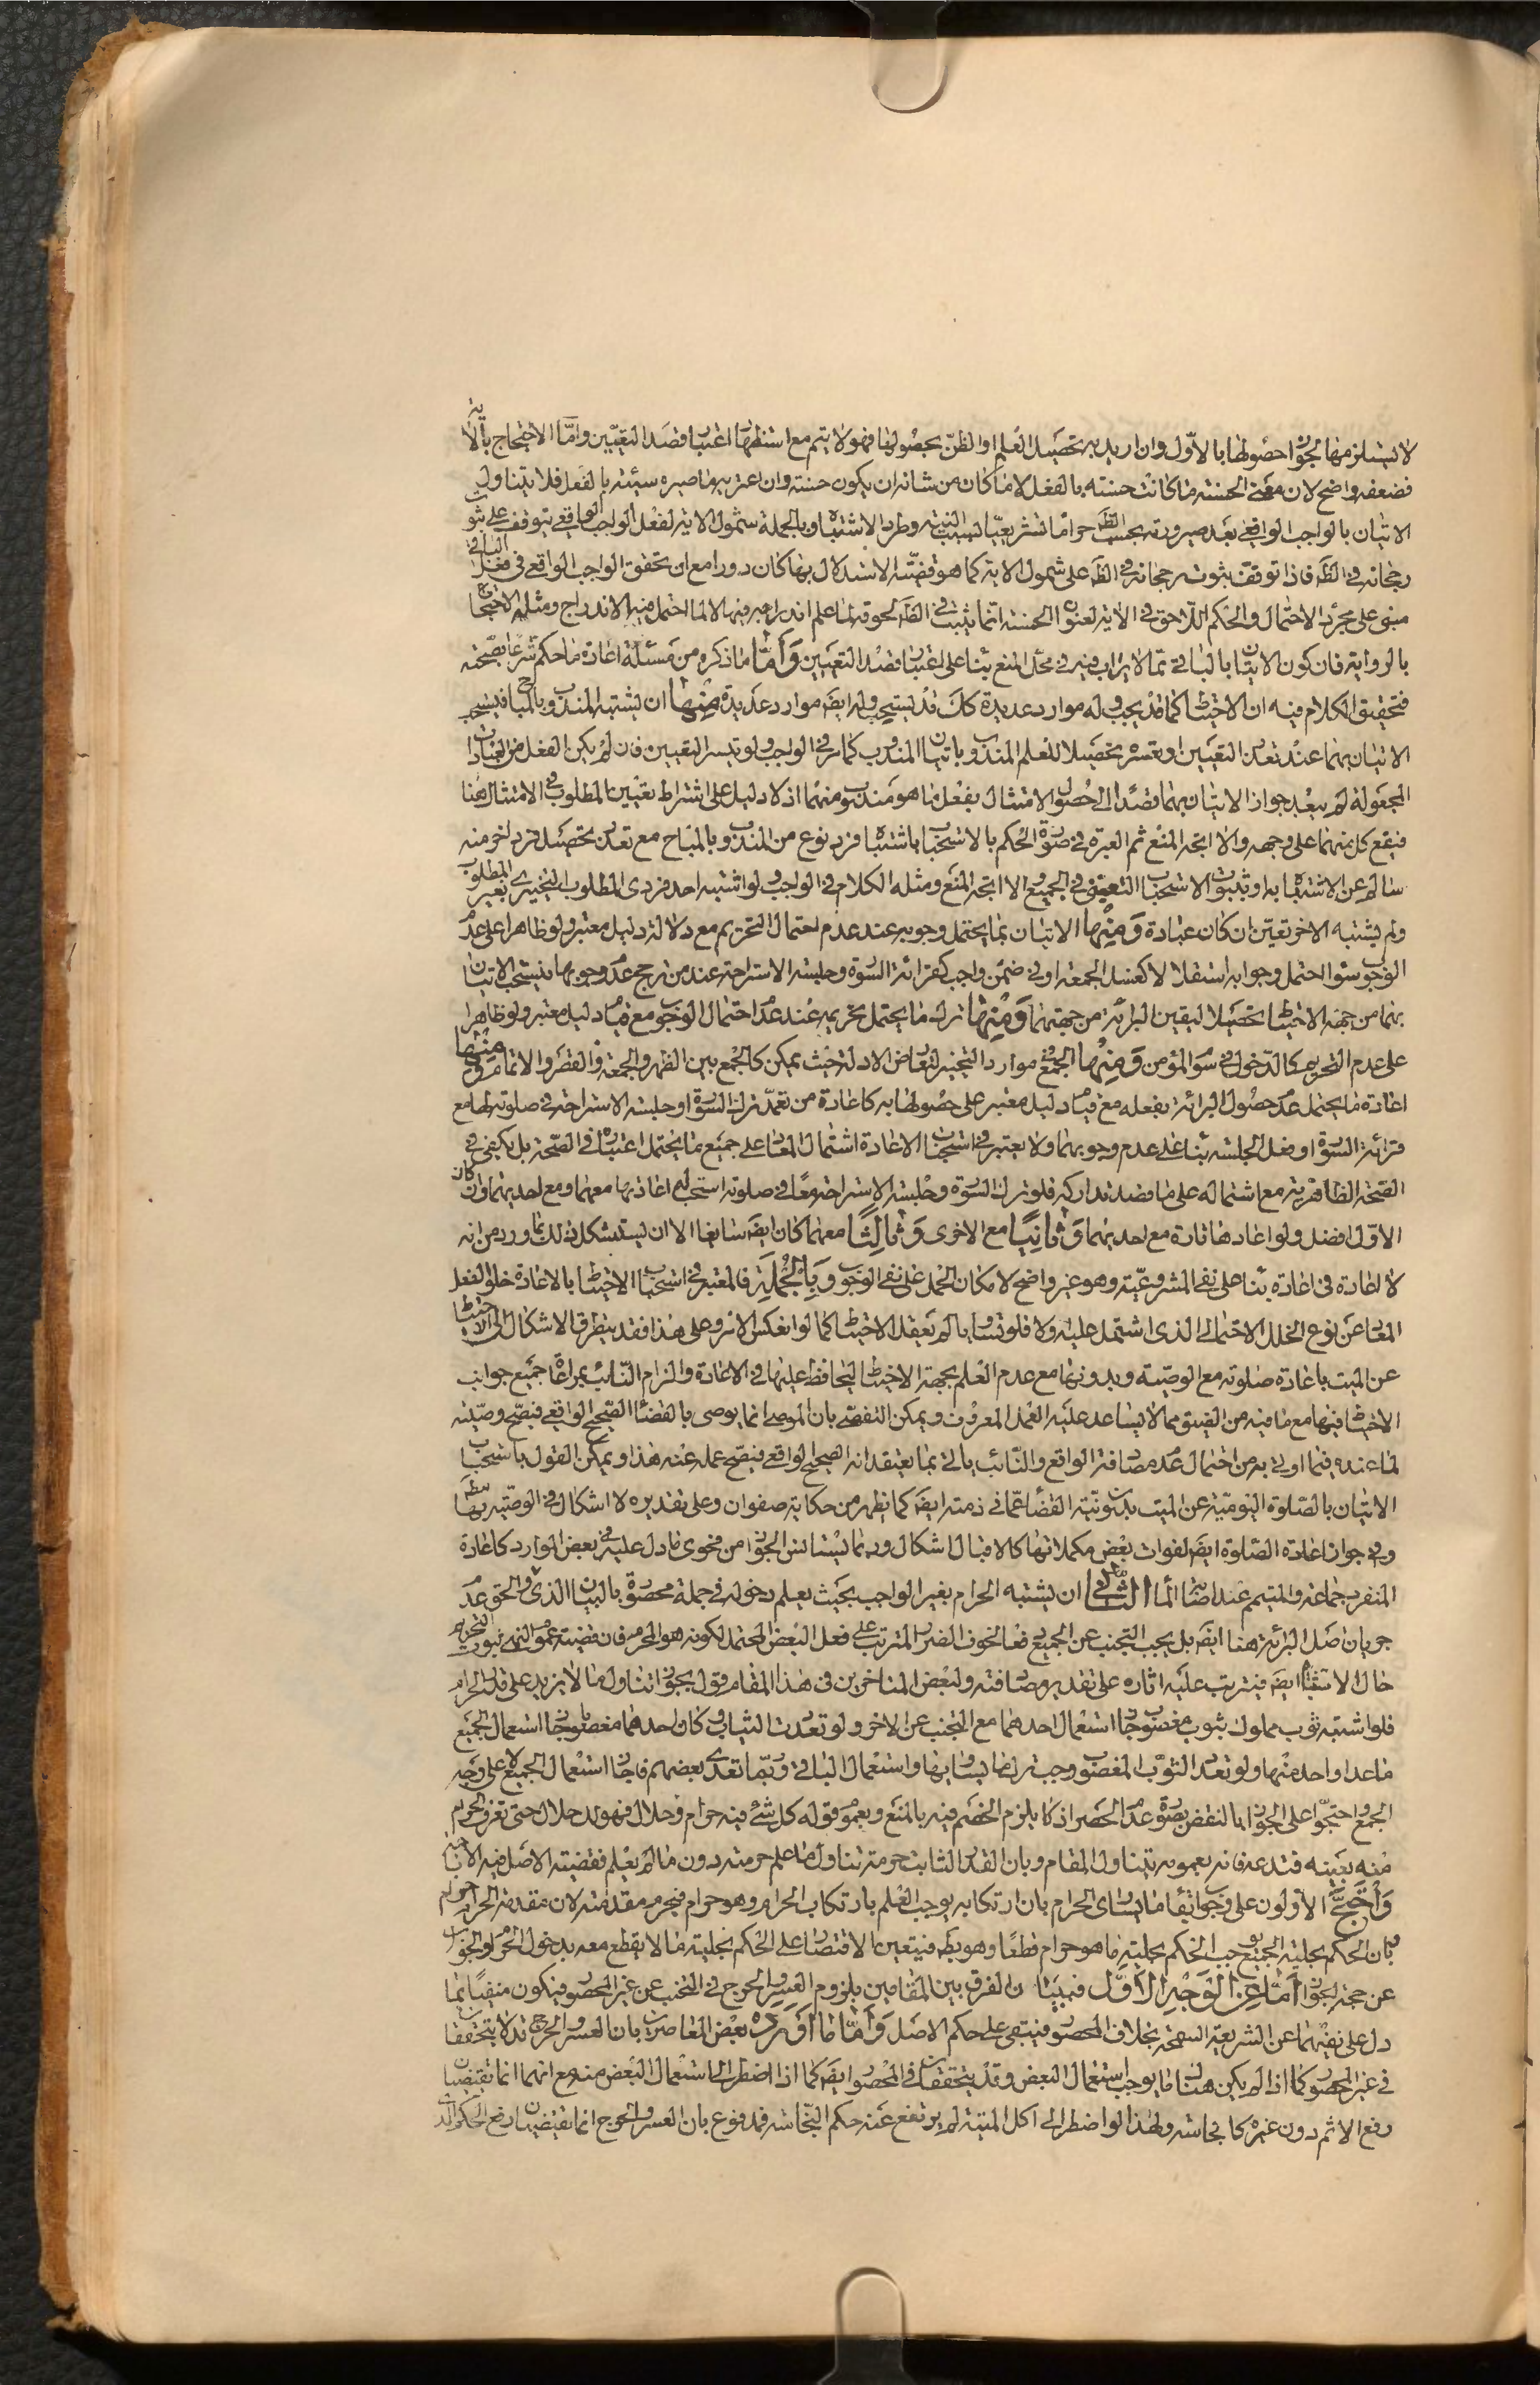 لا يستلزمها لجواز حصولها بالاول وان اريد به تحصيل العلم او الظن بحصولها فهو لا يتم مع استظهار اعتبار قصد التعيين وامّا الاحتجاج بالآية
فضعفه واضح لان معنى الحسنة ما كانت حسنة بالفعل لا ما كان من شانه ان يكون حسنة وان اعتبر به ما صيره سيئة بالفعل فلا يتناول
الاتيان بالواجب الواقعى بعد صيرورته بحسب الظ حراما تشريعيّا لسبب النية وطرد الاشتباه وبالجملة شمول الاية لفعل الواجب الواقعى يتوقف على ثبوت
رجحانه فى الظ فاذا توقف ثبوت رجحانه فى الظ على شمول الاية كما هو قضيّة الاستدلال بها كان دورا مع ان تحقق الواجب الواقعى فى فعل الباقى
مبنى على مجرد الاحتمال والحكم اللاحق فى الاية لعنوان الحسنة انما يثبت فى الظ لحوقه لما علم اندراجه فيها لا لما احتمل فيه الاندراج ومثله الاحتجاج
بالرواية فان كون الاتيان بالباقى مما لا يراب فيه فى محل المنع بناء على اعتبار قصد التعيين وَأمّا ما ذكره من مسئلة اعادة ما حكم شرعا بصحّته
فتحقيق الكلام فيه ان الاحتياط كما قد يجب وله موارد عديدة كك قد يستحب وله ايضَ موارد عديدة مِنْها ان يشتبه المندوب بالمباح فيستحب
الاتيان بهما عند تعذر التعيين او تعسره تحصيلا للعلم باتيان المندوب كما مر فى الواجب ولو تيسر التعيين فان لم يكن الفعل من العبادات
المجعولة لم يبعد جواز الاتيان بهما قصدا الى حصول الامتثال بفعل ما هو مندوب منهما اذ لا دليل على اشتراط تعيين المطلوب فى الامتثال هنا
فيقع كل منهما على وجهه والا اتجه المنع ثم العبرة فى صورة الحكم بالاستحباب باشتباه فرد نوع من المندوب بالمباح مع تعذر تحصيل فرد اخر منه
سالم عن الاشتباه به او بثبوت الاستحباب التعيينى فى الجميع والا اتجه المنع ومثله الكلام فى الواجب ولو اشتبه احد فردى المطلوب التخييرى بغير المطلوب
ولم يشتبه الاخر تعيّن ان كان عبادة وَمِنْها الاتيان بما يحتمل وجوبه عند عدم احتمال التحريم مع دلالة دليل معتبر ولو ظاهرا على عدم
الوجوب سواء احتمل وجوبه استقلالا كغسل الجمعة او فى ضمن واجب كقرائة السورة وجلسة الاستراحة عند من رجح عدم وجوبها فيستحب الاتيان
بهما من جهة الاحتياط تحصيلا ليقين البرائة من جهتهما وَمِنْها ترك ما يحتمل تحريمه عند عدم احتمال الوجوب مع قيام دليل معتبر ولو ظاهرا
على عدم التحريم كالدخول فى سوم المؤمن وَمِنْها الجمع فى موارد التخيير لتعارض الادلة حيث يمكن كالجمع بين الظهر والجمعة والقصر والاتمام وَمِنْها
اعادة ما يحتمل عدم حصول البرائة بفعله مع قيام دليل معتبر على حصولها به كاعادة من تعمد ترك السورة او جلسة الاستراحة فى صلوته لها مع
قرائة السورة او فعل الجلسة بناء على عدم وجوبهما ولا يعتبر فى استحباب الاعادة اشتمال المعاد على جميع ما يحتمل اعتباره فى الصحة بل يكفى فى
الصحة الظاهرية مع اشتماله على ما قصد تداركه فلو ترك السورة وجلسة الاستراحة معا فى صلوته استحب له اعادتها معهما ومع احديهما وان كان
الاول افضل ولو اعادها تارة مع احديهما وَثانِيًا مع الاخرى وَثالِثًا معهما كان ايضَ سايغا الا ان يستشكل ذلك بما ورد من انه
لا اعادة فى اعادة بناء على نفى المشروعيّة وهو غير واضح لامكان الحمل على نفى الوجوب وَبِالْجُمْلَةِ فالمعتبر فى استحباب الاحتياط بالاعادة خلو الفعل
المعاد عن نوع الخلل الاحتمالى الذى اشتمل عليه اولا فلو تساويا لم يعقل الاحتياط كما لو انعكس الامر وعلى هذا فقد يتطرق الاشكال الى الاحتياط
عن الميت باعادة صلوته مع الوصية وبدونها مع عدم العلم بجهة الاحتياط ليحافظ عليها فى الاعادة والتزام النائب بمراعاة جميع جوانب
الاحتياط فيها مع ما فيه من الضيق مما لا يساعد عليه العمل المعروف ويمكن التفصى بان الموصى انما يوصى بالقضاء الصحيح الواقعى فيصح وصيّته
لما عنده فيما اوتى به من احتمال عدم مصادفة الواقع والنائب ياتى بما يعتقد انه الصحيح الواقعى فيصح عمله عنه هذا ويمكن القول باستحباب
الاتيان بالصلوة اليومية عن الميت بدون نيّة القضاء عما فى ذمته ايضَ كما يظهر من حكاية صفوان وعلى تقديره لا اشكال فى الوصية بها مطَ
وفى جواز اعادة الصلوة ايضَ لفوات بعض مكملاتها كالاقبال اشكال وربما يستانس الجواز من فحوى ما دل عليه فى بعض الموارد كاعادة
المنفرد جماعة والمتيمم عند اصابة الماء الثانى ان يشتبه الحرام بغير الواجب بحيث يعلم دخوله فى جملة محصورة بالبيان الذى مر والحق عدم
جريان اصل البرائة هنا ايضَ بل يجب التجنب عن الجميع دفعا لخوف الضرر المترتب على فعل البعض المحتمل لكونه هو المحرم فان قضية عموم النهى ثبوت التحريم
حال الاشتباه ايضَ فيترتب عليه اثاره على تقدير مصادفته ولبعض المتاخرين فى هذا المقام قول بجواز تناول ما لا يزيد على قدر الحرام
فلو اشتبه ثوب مملوك بثوب مغصوب جاز استعمال احدهما مع التجنب عن الاخر ولو تعددت الثياب وكان واحد منها مغصوبا جاز استعمال الجميع
ما عدا واحد منها ولو تعدد الثوب المغصوب وجب ترك ما يساويها واستعمال الباقى وربّما تعدى بعضهم فاجاز استعمال الجميع لا على وجه
الجمع واحتجوا على الجواز بالنقض بصورة عدم الحصر اذ لا يلزم الخصم فيه بالمنع وبعموم قوله كل شئ فيه حرام وحلال فهو لك حلال حتى تعرف الحرام
منه بعينه فتدعه فانه بعمومه يتناول المقام وبان القدر الثابت حرمة تناول ما علم حرمته دون ما لم يعلم فقضية الاصل فيه الاباحة
وَاحْتَجَّ الاولون على وجوب ابقاء ما يساوى الحرام بان ارتكابه يوجب العلم بارتكاب الحرام وهو حرام فيحرم مقدمته لان مقدمة الحرام حرام
وبان الحكم بحلية الجميع يوجب الحكم بحلية ما هو حرام قطعًا وهو بط فيتعين الاقتصار على الحكم بحلية ما لا يقطع معه بدخول الحرام والجواب
عن حجة الجواز أمّا عَنِ الْوَجْهِ الْاَوَّل فببيان الفرق بين المقامين بلزوم العسر والحرج فى التجنب عن غير المحصور فيكون منفيا بما
دل على نفيهما عن الشريعة السمحة بخلاف المحصور فيبقى على حكم الاصل وَأمّا ما اَوْرَدَهُ بعض المعاصرين بان العسر والحرج قد لا يتحققان
فى غير المحصور كما اذا لم يكن هناك ما يوجب استعمال البعض وقد يتحققان فى المحصور ايضَ كما اذا اضطر الى استعمال البعض منه مع انهما انما يقتضيان
رفع الاثم دون غيره كالنجاسة ولهذا لو اضطر الى اكل الميتة لم يرتفع عنه حكم النجاسة فمدفوع بان العسر والحرج انما يقتضيان رفع الحكم الذى